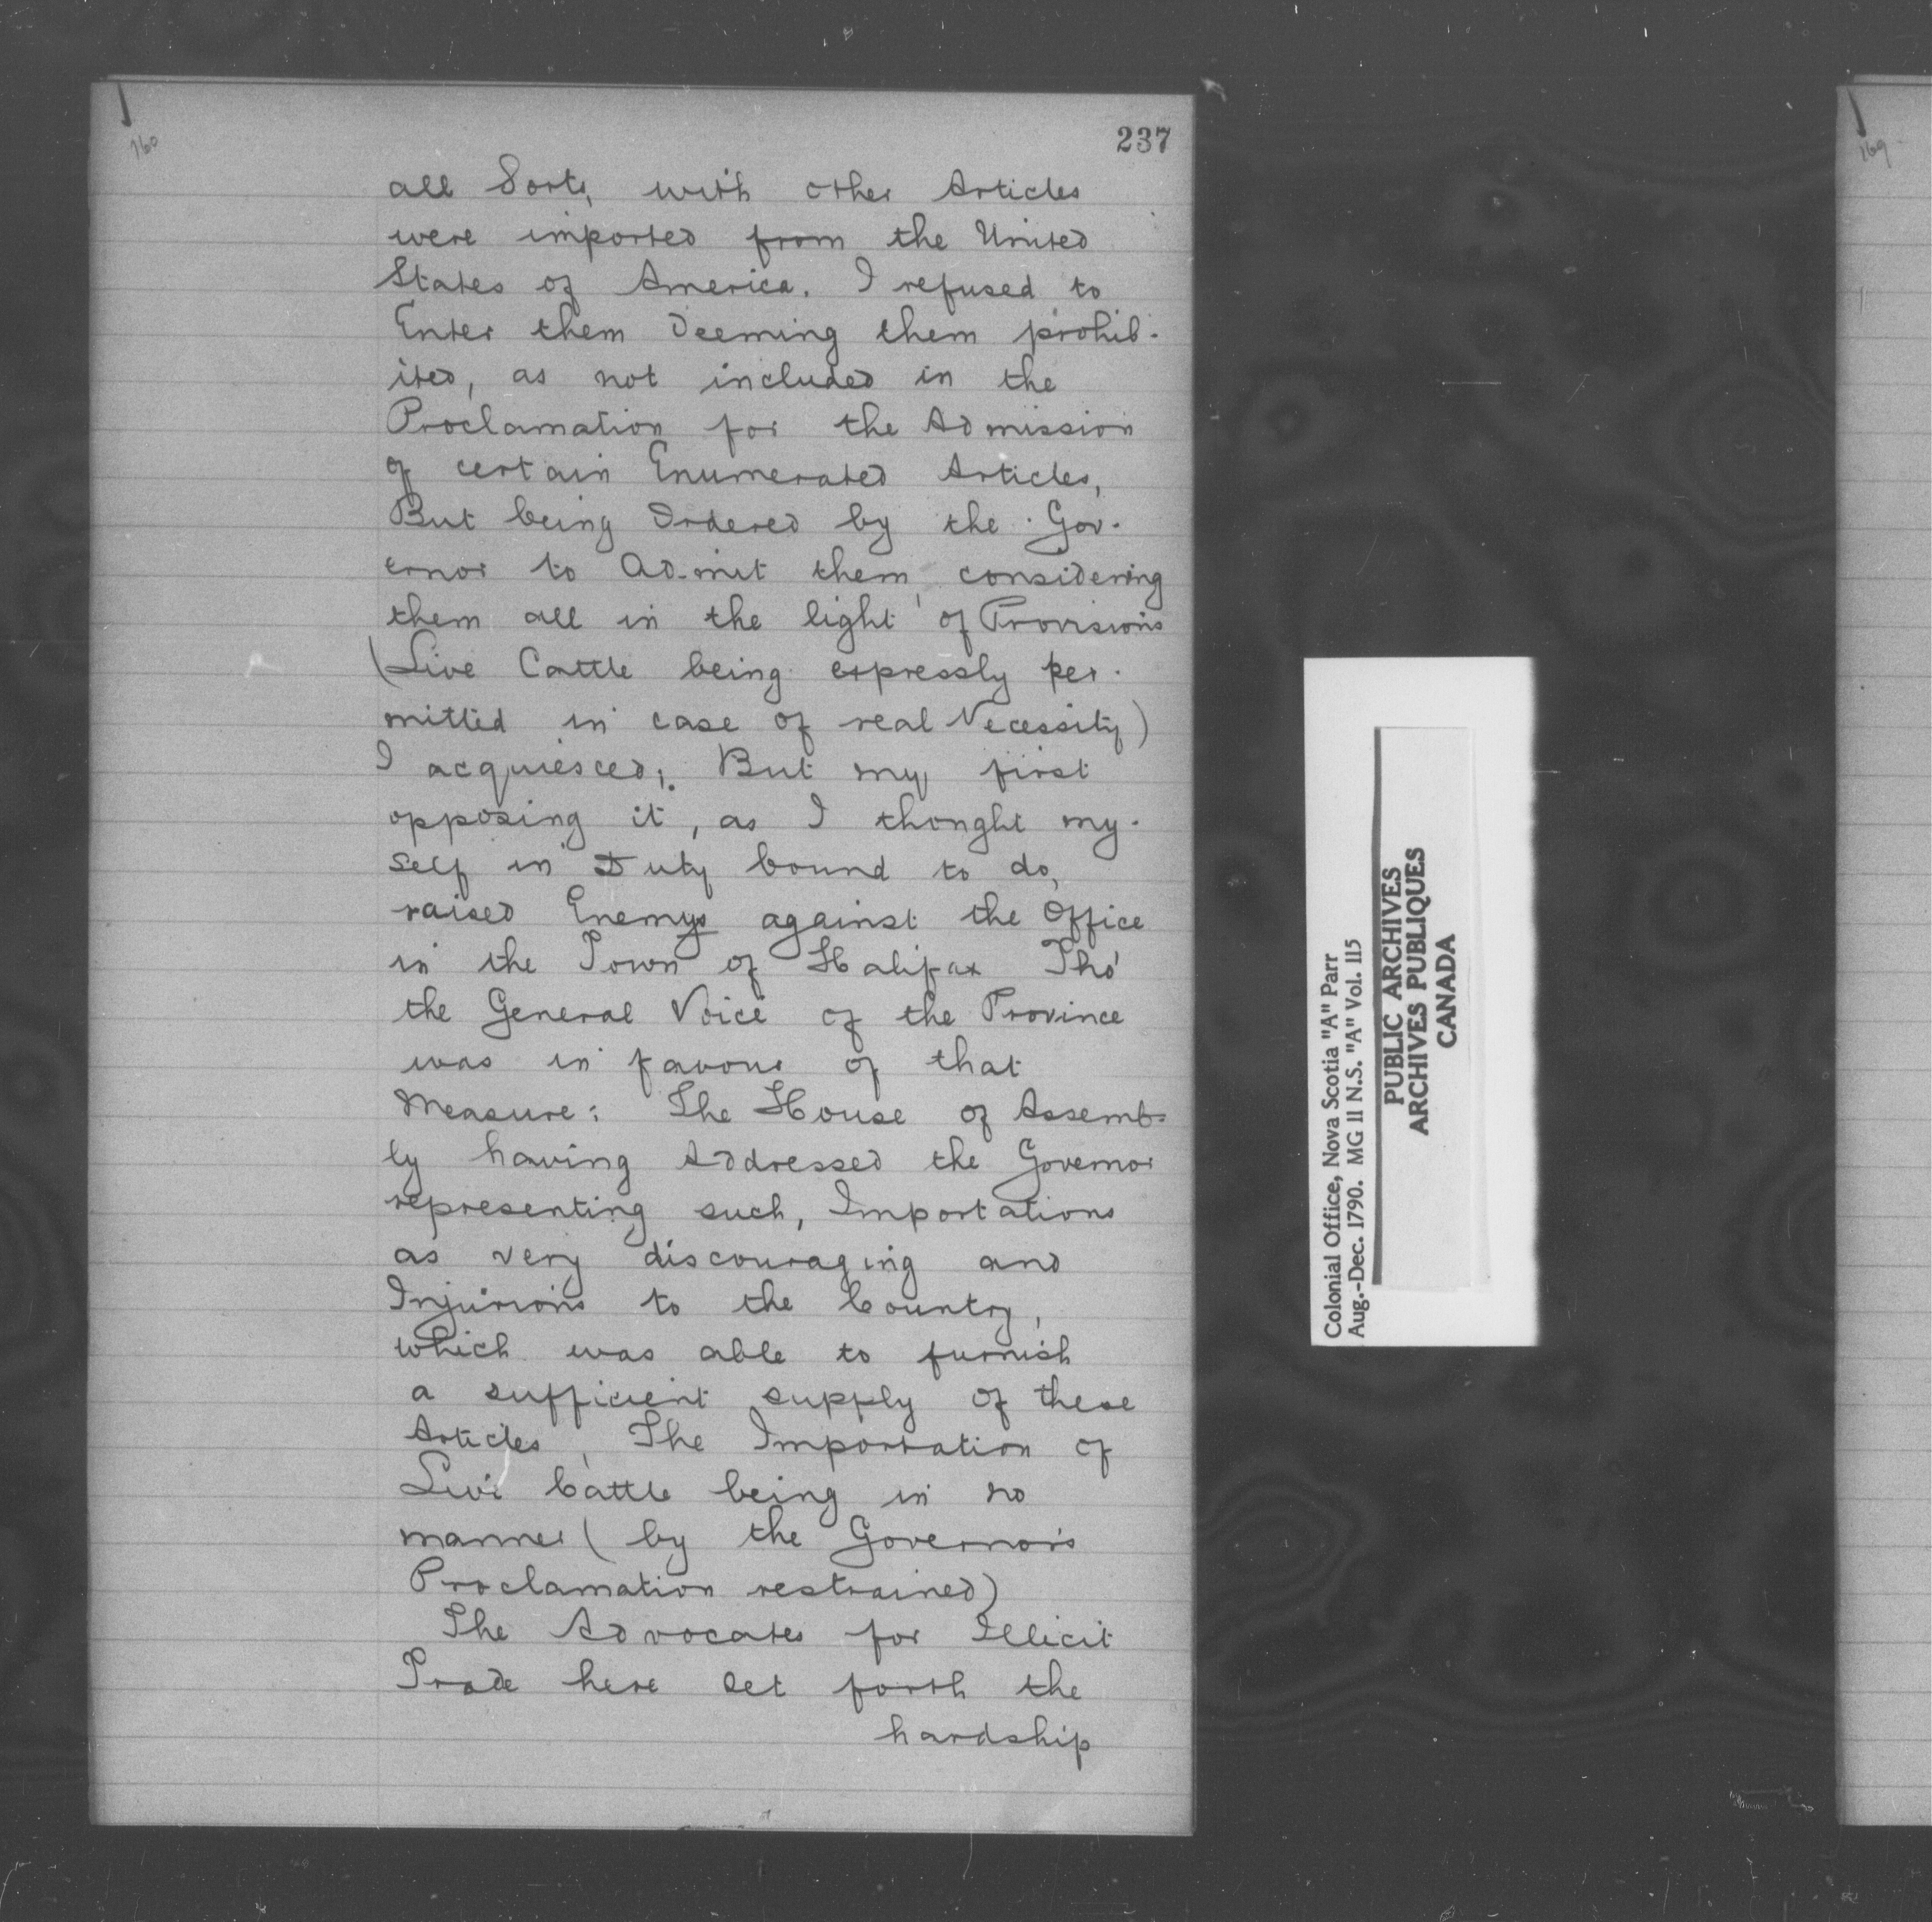 237
160
all Sorts, with other Articles
were imported from the United
States of America. I refused to
Enter them Deeming them prohib-
ited, as not included in the
Proclamation for the Admission
of certain Enumerated Articles,
But being Ordered by the Gov-
ernor to Ad-mit them, considering
them all in the light of Provisions
(Live Cattle being expressly per-
mitted in case of real Necessity)
I acquiesced; But my first
opposing it, as I thought my-
self in Duty bound to do,
raised Enemys against the Office
in the Town of Halifax Tho'
the General Voice of the Province
was in favour of that
Measure: The House of Assemb-
ly having Addressed the Governor
representing such, Importations
as very discouraging and
Injurious to the Country,
which was able to furnish
a sufficient supply of these
Articles, The Importation of
Live Cattle being in no
manner (by the Governor's
Proclamation restrained)
The Advocates for Illicit
Trade here set forth the
hardship
Colonial Office, Nova Scotia "A" Parr
Aug.-Dec. 1790. MG 11 N.S. "A" Vol. 115
PUBLIC ARCHIVES
ARCHIVES PUBLIQUES
CANADA
169